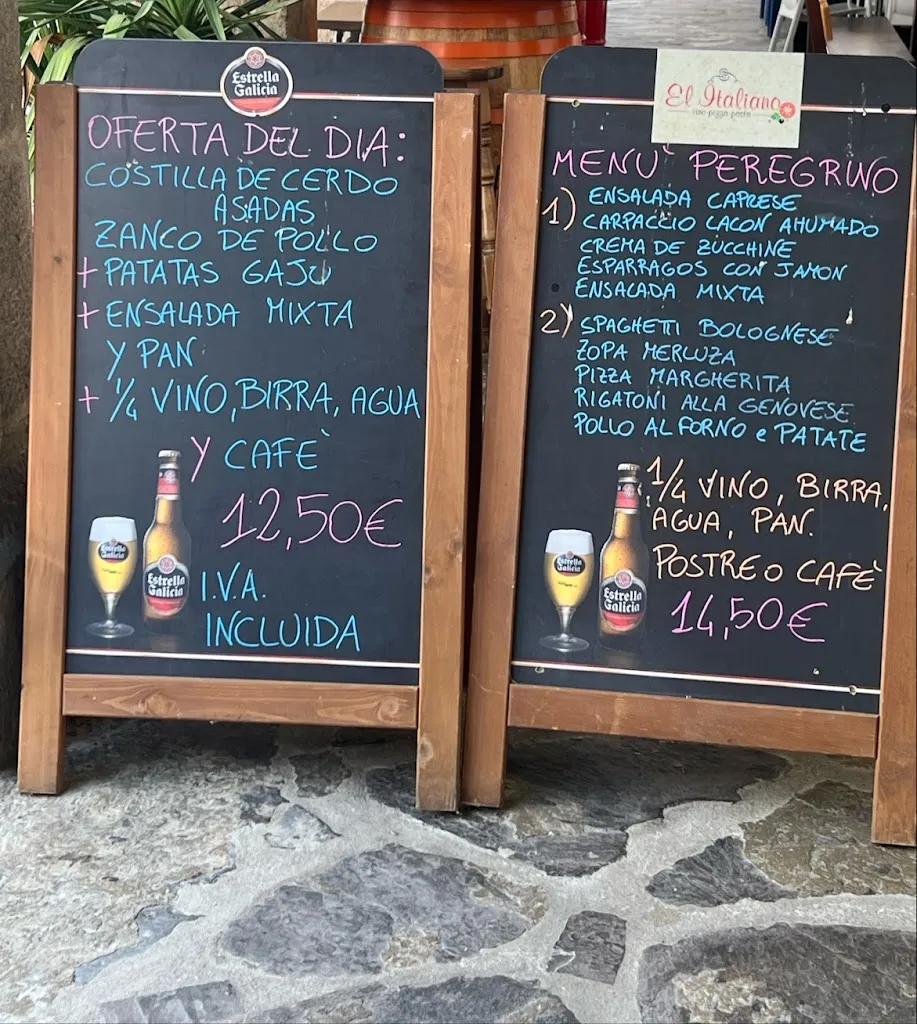 Estrella
Galicia
OFERTA DEL DIA:
COSTILLA DE CERDO
ASADAS
ZANCO DE POLLO
+ PATATAS GAJO
+ ENSALADA MIXTA
Y PAN
+ 1/4 VINO, BIRRA, AGUA
Y CAFÈ
12,50€
I.V.A.
INCLUIDA
Estrella
Galicia
Estrella
Galicia
El Italiano
MENU' PEREGRINO
1) ENSALADA CAPRESE
CARPACCIO LACON AHUMADO
CREMA DE ZUCCHINE
ESPARRAGOS CON JAMON
ENSALADA MIXTA
2) SPAGHETTI BOLOGNESE
ZOPA MERLUZA
PIZZA MARGHERITA
RIGATONI ALLA GENOVESE
POLLO AL FORNO e PATATE
1/4 VINO, BIRRA,
AGUA, PAN.
POSTRE O CAFÈ
14,50€
Estrella
Galicia
Estrella
Galicia